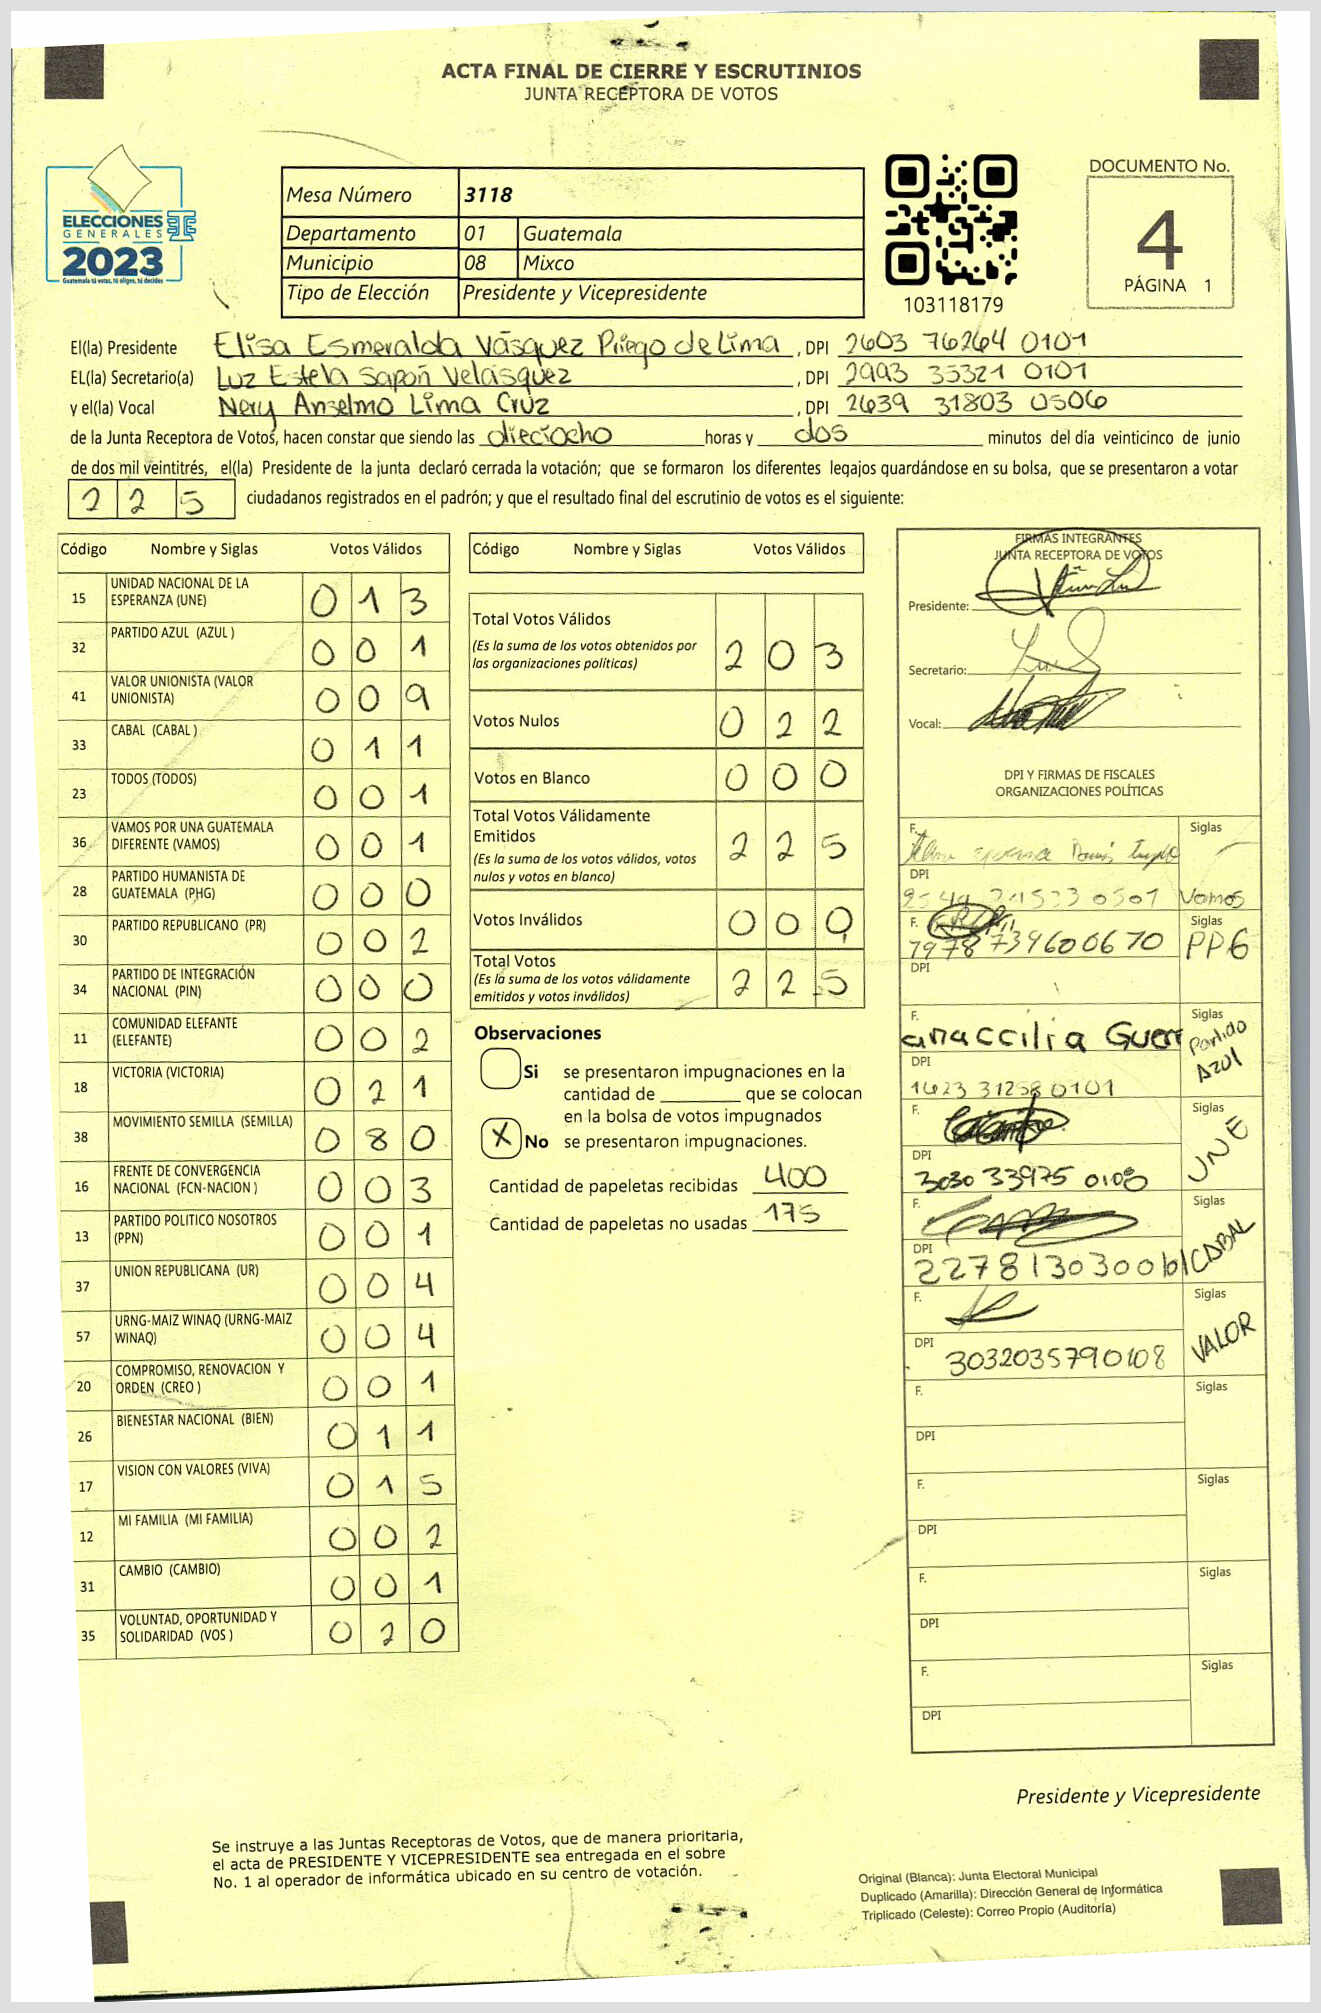 ACTA FINAL DE CIERRE Y ESCRUTINIOS
JUNTA RECEPTORA DE VOTOS
ELECCIONES
GENERALES
2023
Guatemala tú votas, tú eliges, tú decides
Mesa Número 3118
Departamento 01 Guatemala
Municipio 08 Mixco
Tipo de Elección Presidente y Vicepresidente
103118179
DOCUMENTO No.
4
PÁGINA 1
El(la) Presidente Elisa Esmeralda Vásquez Priego de Lima, DPI 2603 76264 0101
EL(la) Secretario(a) Luz Estela Sapon Velásquez, DPI 2993 35321 0101
y el(la) Vocal Nery Anselmo Lima Cruz, DPI 2639 31803 0506
de la Junta Receptora de Votos, hacen constar que siendo las dieciocho horas y dos minutos del día veinticinco de junio
de dos mil veintitrés, el(la) Presidente de la junta declaró cerrada la votación; que se formaron los diferentes legajos guardándose en su bolsa, que se presentaron a votar
225 ciudadanos registrados en el padrón; y que el resultado final del escrutinio de votos es el siguiente:
Código Nombre y Siglas Votos Válidos
15 UNIDAD NACIONAL DE LA ESPERANZA (UNE) 013
32 PARTIDO AZUL (AZUL ) 001
41 VALOR UNIONISTA (VALOR UNIONISTA) 009
33 CABAL (CABAL ) 011
23 TODOS (TODOS) 001
36 VAMOS POR UNA GUATEMALA DIFERENTE (VAMOS) 001
28 PARTIDO HUMANISTA DE GUATEMALA (PHG) 000
30 PARTIDO REPUBLICANO (PR) 002
34 PARTIDO DE INTEGRACIÓN NACIONAL (PIN) 000
11 COMUNIDAD ELEFANTE (ELEFANTE) 002
18 VICTORIA (VICTORIA) 021
38 MOVIMIENTO SEMILLA (SEMILLA) 080
16 FRENTE DE CONVERGENCIA NACIONAL (FCN-NACION ) 003
13 PARTIDO POLITICO NOSOTROS (PPN) 001
37 UNION REPUBLICANA (UR) 004
57 URNG-MAIZ WINAQ (URNG-MAIZ WINAQ) 004
20 COMPROMISO, RENOVACION Y ORDEN (CREO ) 001
26 BIENESTAR NACIONAL (BIEN) 011
17 VISION CON VALORES (VIVA) 015
12 MI FAMILIA (MI FAMILIA) 002
31 CAMBIO (CAMBIO) 001
35 VOLUNTAD, OPORTUNIDAD Y SOLIDARIDAD (VOS ) 020
Código Nombre y Siglas Votos Válidos
Total Votos Válidos
(Es la suma de los votos obtenidos por
las organizaciones políticas) 203
Votos Nulos 022
Votos en Blanco 000
Total Votos Válidamente
Emitidos
(Es la suma de los votos válidos, votos
nulos y votos en blanco) 225
Votos Inválidos 000
Total Votos
(Es la suma de los votos válidamente
emitidos y votos inválidos) 225
Observaciones
Si se presentaron impugnaciones en la
cantidad de que se colocan
en la bolsa de votos impugnados
X No se presentaron impugnaciones.
Cantidad de papeletas recibidas 400
Cantidad de papeletas no usadas 175
FIRMAS INTEGRANTES
JUNTA RECEPTORA DE VOTOS
Presidente:
Secretario:
Vocal:
DPI Y FIRMAS DE FISCALES
ORGANIZACIONES POLÍTICAS
F. Siglas
DPI
Vamos
F. Siglas
7978739600670 PPG
DPI
F. Siglas
anaccilia Guerr Partido
AZUL
DPI
1623 31258 0101
F. Siglas
UNE
DPI
3030 33975 0108
F. Siglas
CABAL
DPI
2278130300101
F. Siglas
VALOR
DPI 3032035790108
F. Siglas
DPI
F. Siglas
DPI
F. Siglas
DPI
F. Siglas
DPI
Presidente y Vicepresidente
Se instruye a las Juntas Receptoras de Votos, que de manera prioritaria,
el acta de PRESIDENTE Y VICEPRESIDENTE sea entregada en el sobre
No. 1 al operador de informática ubicado en su centro de votación.
Original (Blanca): Junta Electoral Municipal
Duplicado (Amarilla): Dirección General de Informática
Triplicado (Celeste): Correo Propio (Auditoría)